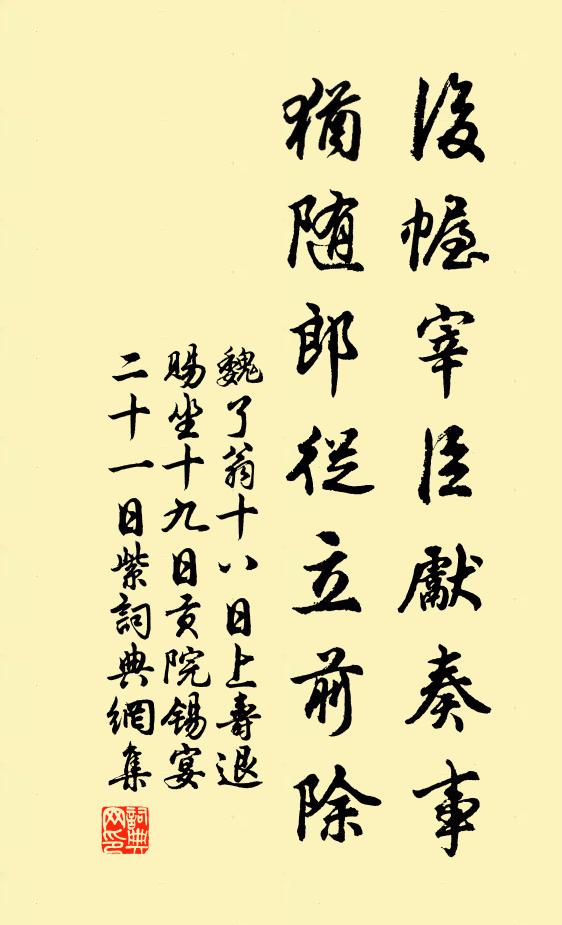 後幄宰臣獻奏事
猶随郎從立前除
魏了翁十八日上壽退
賜坐十九日貢院錫宴
二十一日紫詞典網集
詞典
网印